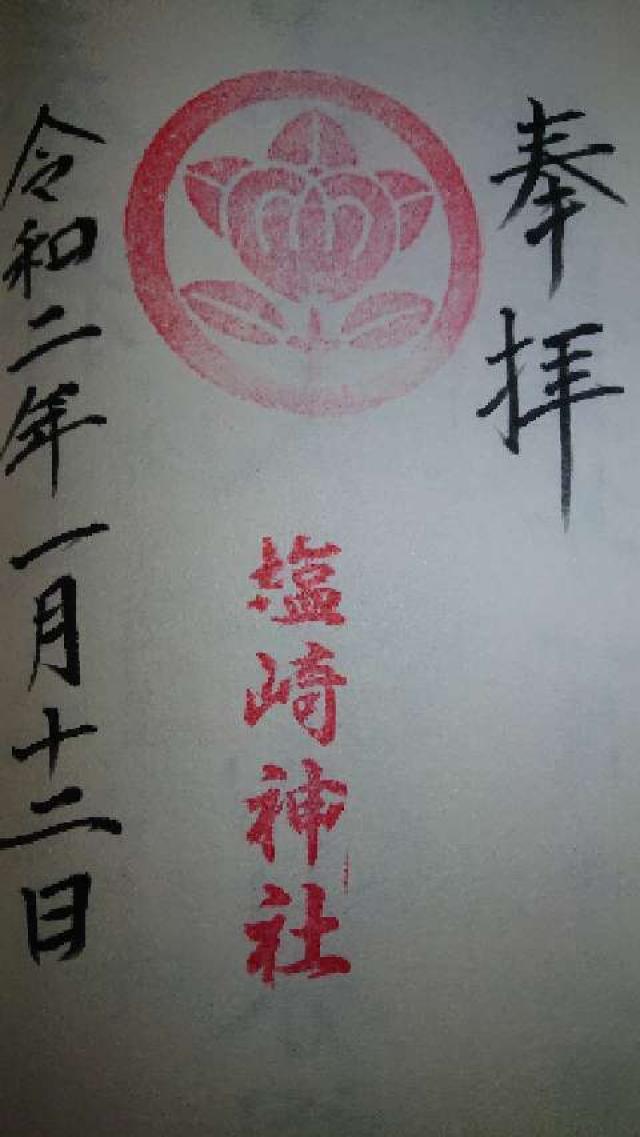 奉拝
塩崎神社
令和二年一月十二日